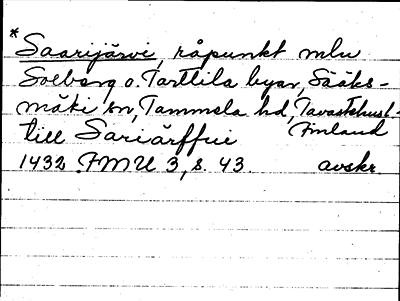 *Saarijärvi, råpunkt mlu
Solberg o. Tarttila byar, Sääks-
mäki sn, Tammela hd, Tavastehusl-
till Sariärffui Finland
1432 FMU 3, s. 43. avskr.